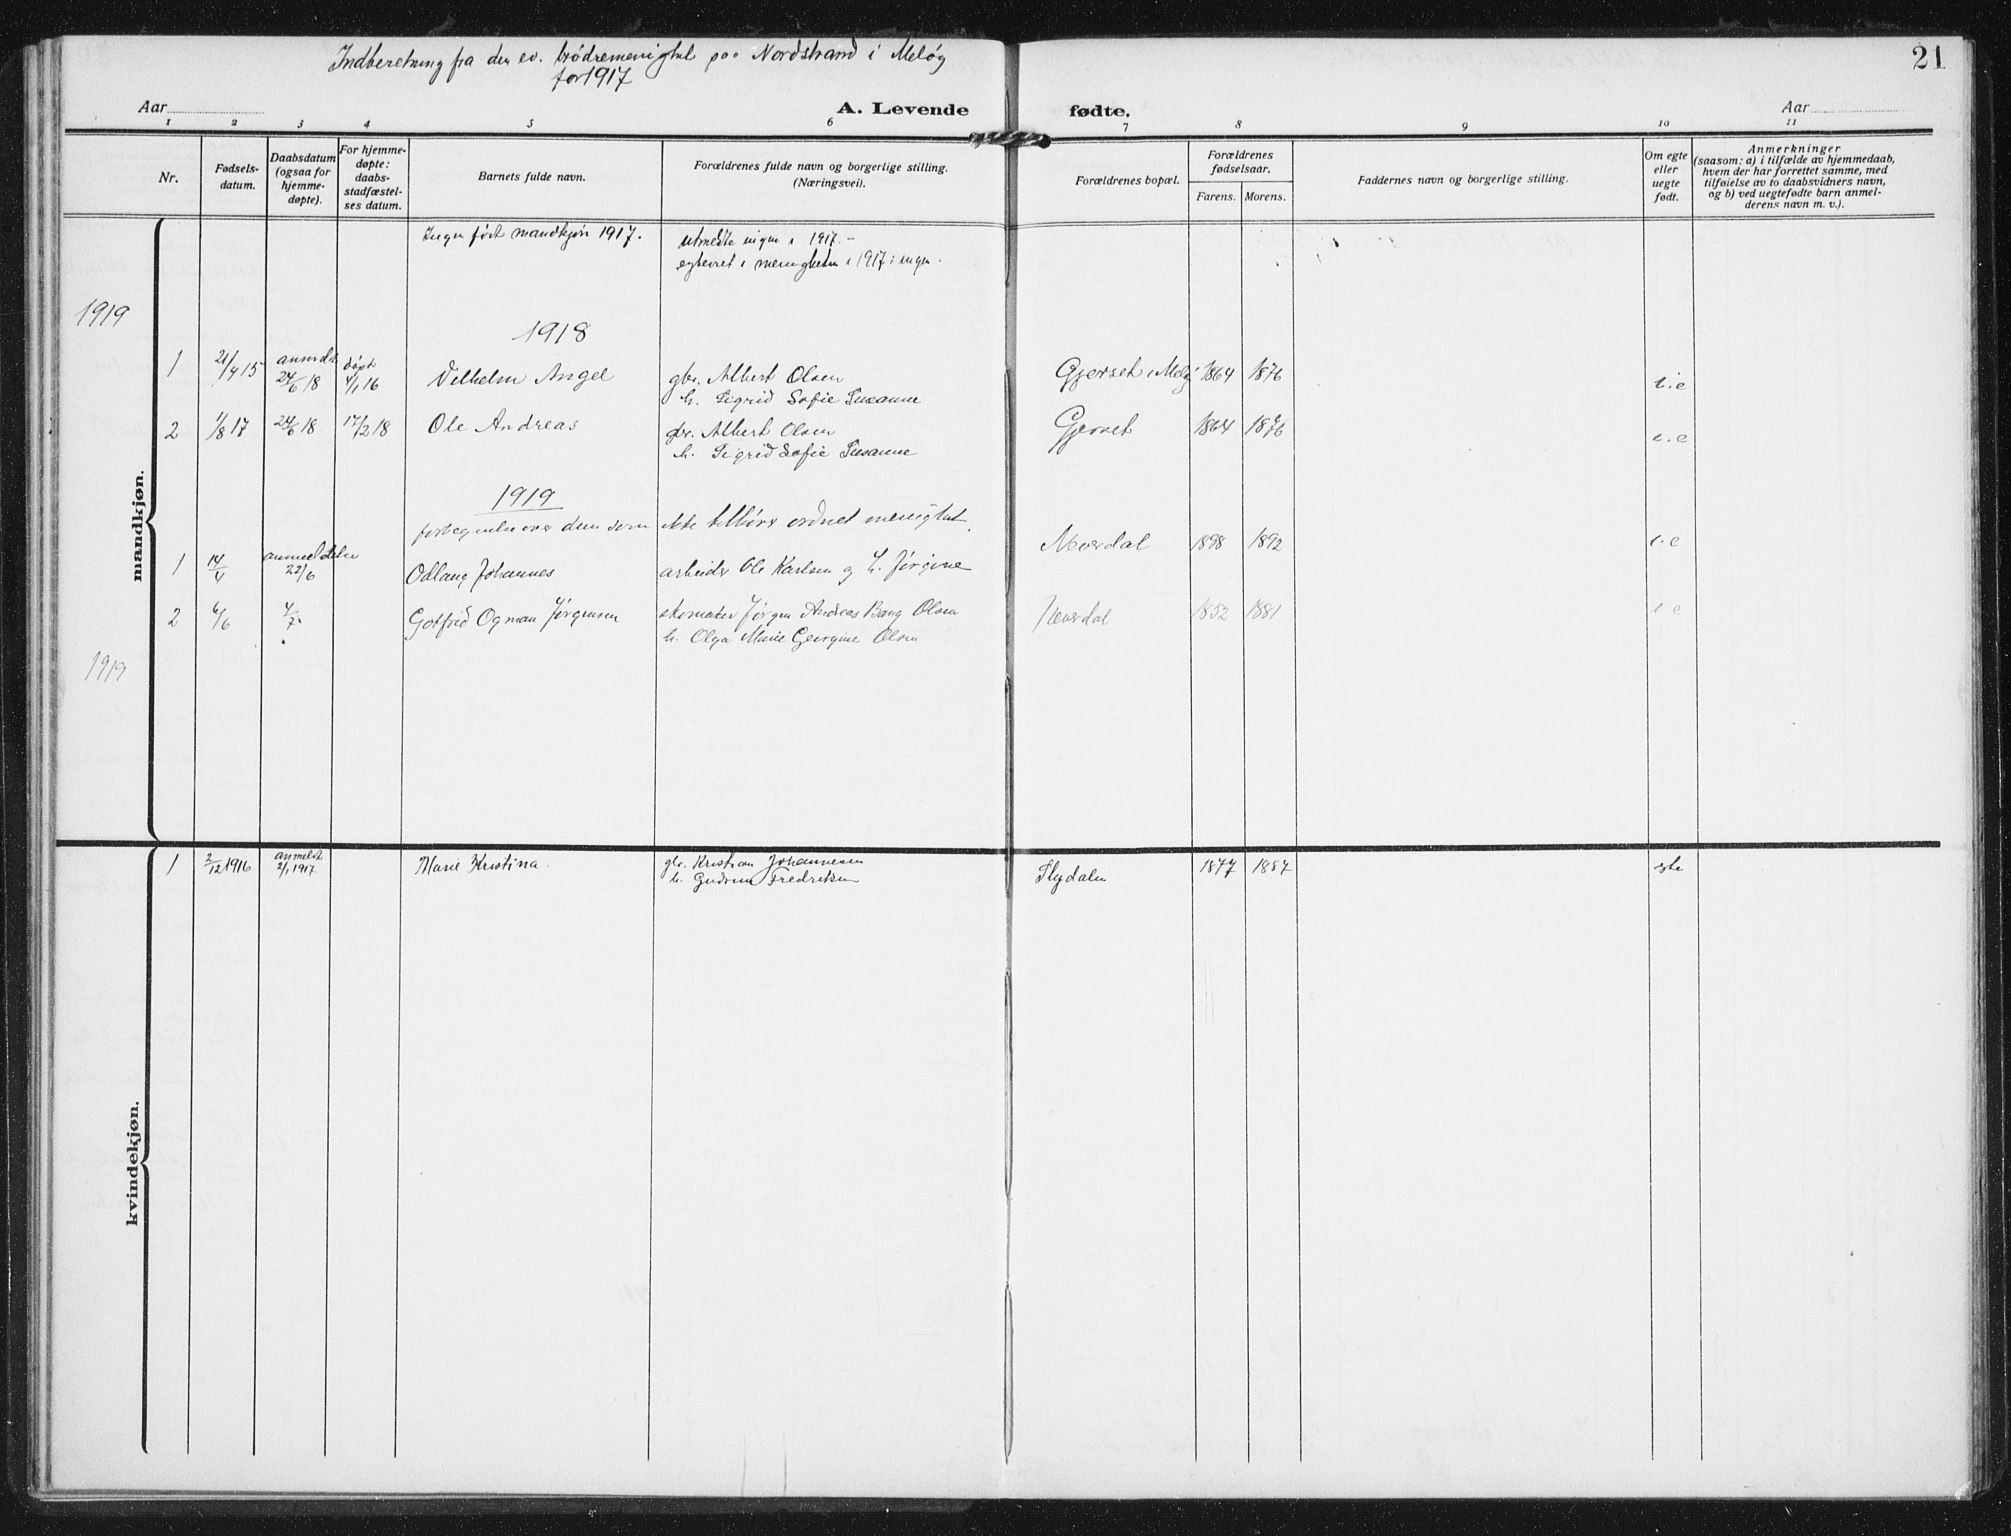 Indberetning fra den ev. brødremenighet paa Nordstrand i Meløy
for 1917
21
Aar
A. Levende
fødte.
Aar
1 2 3 4 5 6 7 8 9 10 11
Nr.
Fødsels-
datum.
Daabsdatum
(ogsaa for
hjemme-
døpte).
For hjemme-
døpte:
daabs-
stadfæstel-
ses datum.
Barnets fulde navn.
Forældrenes fulde navn og borgerlige stilling.
(Næringsvei).
Forældrenes bopæl.
Forældrenes
fødselsaar.
Farens. Morens.
Faddernes navn og borgerlige stilling.
Om egte
eller
uegte
født.
Anmerkninger
(saasom: a) i tilfælde av hjemmedaab,
hvem der har forrettet samme, med
tilføielse av to daabsvidners navn,
og b) ved uegtefødte barn anmel-
derens navn m. v.).
Ingen født mandkjøn 1917.
utmeldte ingen i 1917.-
egteviet i menigheten i 1917: ingen.
1919
1918
1 21/4 15 anmeldt 24/6 18 døpt 4/1 16 Vilhelm Angel gbr. Albert Olsen Gjerset i Meløy 1864 1876 i.e
h. Sigrid Sofie Susanne
2 1/8 17 24/6 18 17/2 18 Ole Andreas gbr. Albert Olsen Gjerset 1864 1876 i.e
h. Sigrid Sofie Susanne
mandkjøn.
1919
over dem som ikke tilhører ordnet menighet.
1 14/4 22/6 Odlaug Johannes arbeider Ole Karlsen og h. Jørgine Neverdal 1898 1892 i.e
2 6/6 4/7 Gotfrid Ogman Jørgensen skomaker Jørgen Andreas Bang Olsen Neverdal 1852 1881 i.e
h. Olga Marie Georgine Olsen
1919
1 2/12 1916 anmeldt 2/1 1917 Marie Kristina. gbr. Kristian Johannesen 1877 1887
h. Gudrun Fredriksen
kvindekjøn.